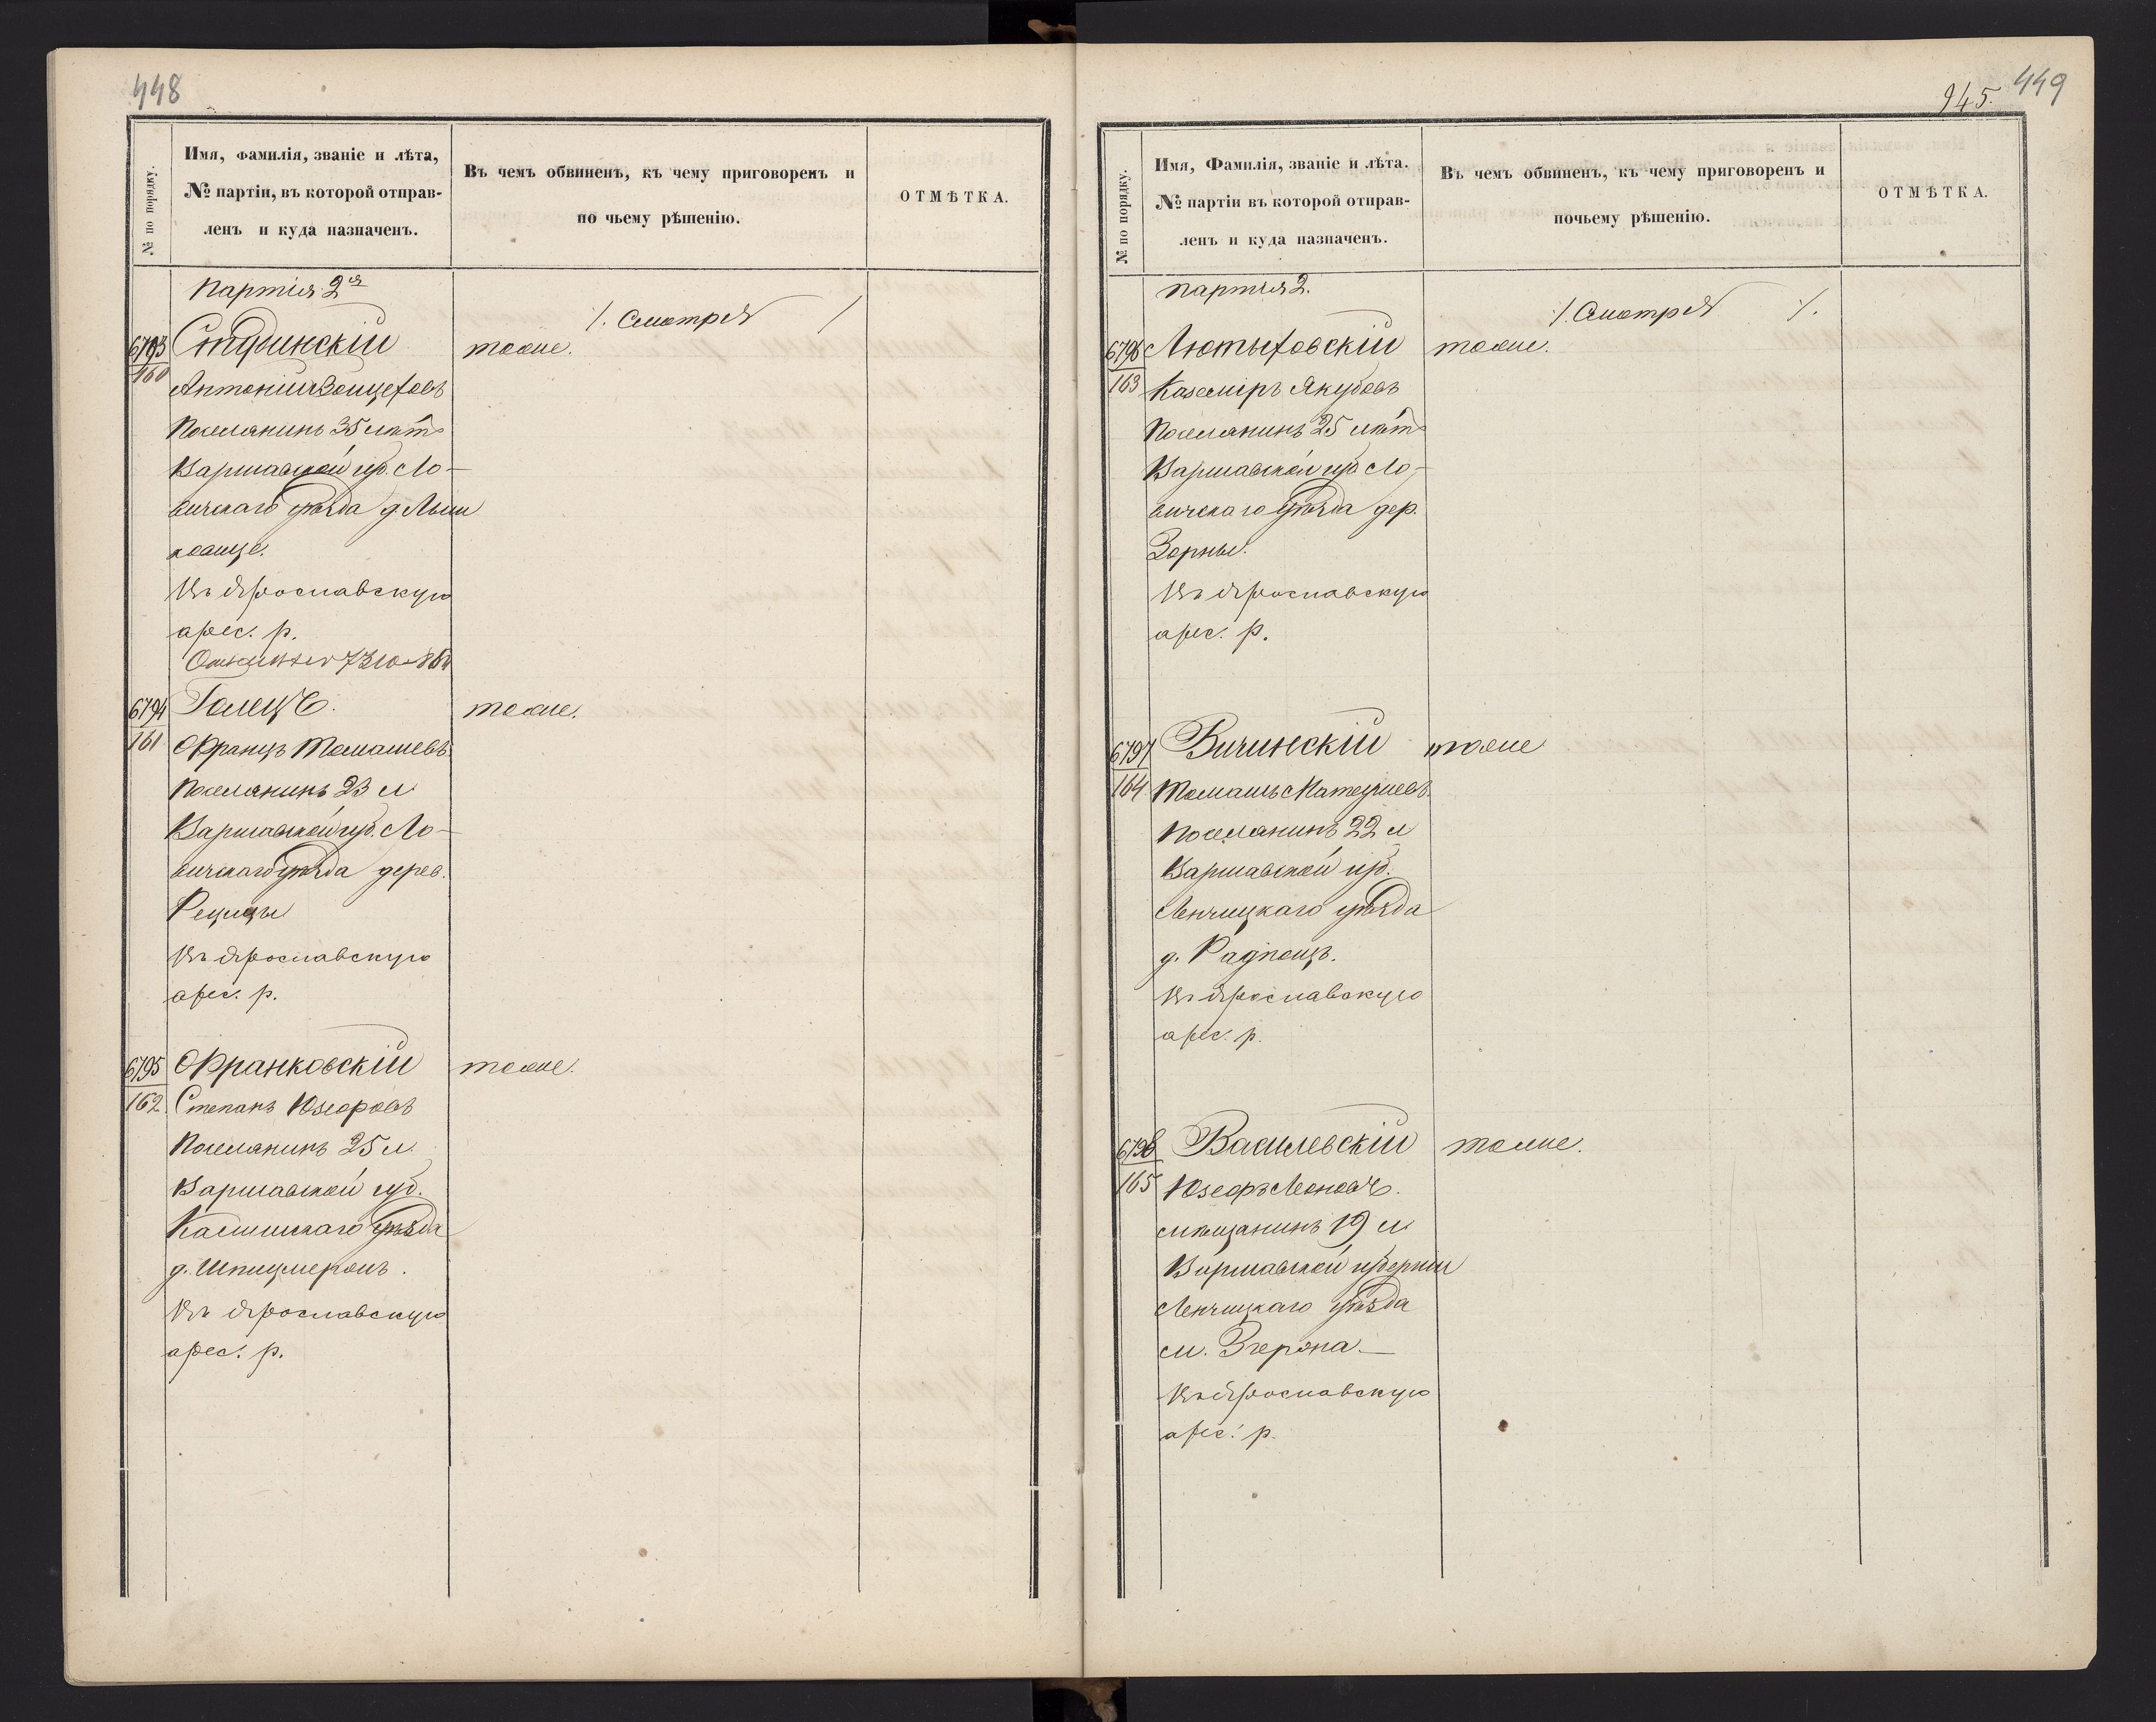 448
№ по порядку.
Имя, фамилія, званіе и лѣта,
№ партіи, въ которой отправ-
ленъ и куда назначенъ.
Въ чемъ обвиненъ, къ чему приговоренъ и
по чьему рѣшенію.
ОТМѢТКА.
Партія 2я
/. Смотрѣ /
6793
160
Студинскій
тоже.
Антоній
Поселянинъ 35 лѣтъ
Варшавской губ. Ло-
вичскаго уѣзда д. Лыш
ковице.
Въ Ярославскую
арес. р.
6794
161
Галецъ.
тоже.
Францъ Томашевъ
Поселянинъ 23 л
Варшавской губ. Ло-
вичскаго уѣзда дерев.
Рещицы
Въ Ярославскую
арес. р.
6795
162.
Франковскій
тоже.
Степанъ Юзефовъ
Поселянинъ 25 л.
Варшавской губ.
Калишскаго уѣзда
д. Шпицмеровъ.
Въ Ярославскую
арес. р.
449
945.
№ по порядку.
Имя, Фамилія, званіе и лѣта.
№ партіи въ которой отправ-
ленъ и куда назначенъ.
Въ чемъ обвиненъ, къ чему приговоренъ и
почьему рѣшенію.
ОТМѢТКА.
партія 2.
/. Смотрѣ /.
6796
163
Лютыховскій
тоже.
Каземіръ Якубовъ
Поселянинъ 25 лѣтъ
Варшавской губ Ло-
вичскаго уѣзда дер.
Зорны.
Въ Ярославскую
арес. р.
6797
164
Вичинскій
тоже
Томашъ Матеушевъ.
Поселянинъ 22 л
Варшавской губ.
Ленчицкаго уѣзда
д.
Въ Ярославскую
арес. р.
6798
165
Василевскій
тоже.
Юзефъ Леоновъ.
мѣщанинъ 19 л.
Варшавской губерніи
Ленчицкаго уѣзда
м. Згержа.—
Въ Ярославскую
арес. р.